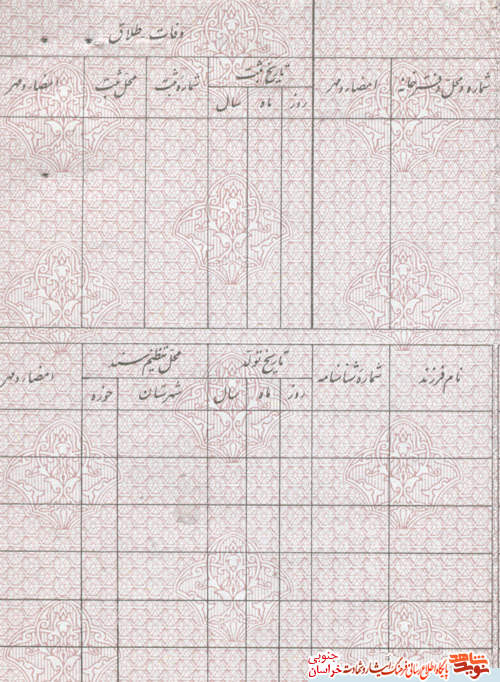 وفات - طلاق
شماره ومحل دفترخانه
امضاء و مهر
تاریخ ثبت
روز
ماه
سال
شماره ثبت
محل ثبت
امضاء و مهر
نام فرزند
شمارۀ شناسنامه
تاریخ تولد
روز
ماه
سال
محل تنظیم سند
شهرستان
حوزه
امضاء و مهر
نوید شاهد
پایگاه اطلاع رسانی فرهنگ ایثار و شهادت
خراسان جنوبی